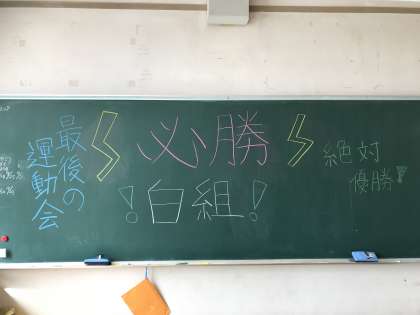 最後の
運動会
必勝
！白組！
絶対
優勝！！